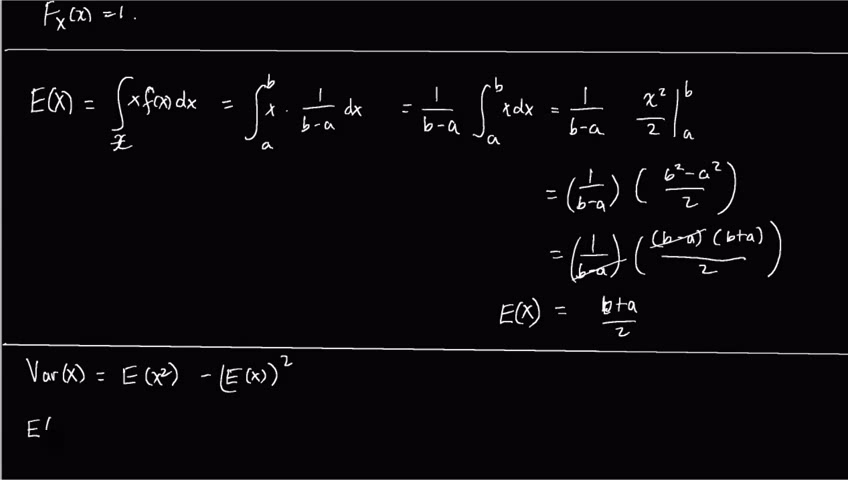 F_X(x) = 1.
E(X) = ∫_𝒳 x f(x) dx = ∫_a^b x · 1/(b-a) dx = 1/(b-a) ∫_a^b x dx = 1/(b-a) x²/2 |_a^b
= (1/(b-a)) ((b²-a²)/2)
= (1/(b-a)) ((b-a)(b+a)/2)
E(X) = (b+a)/2
Var(X) = E(X²) - (E(X))²
E(